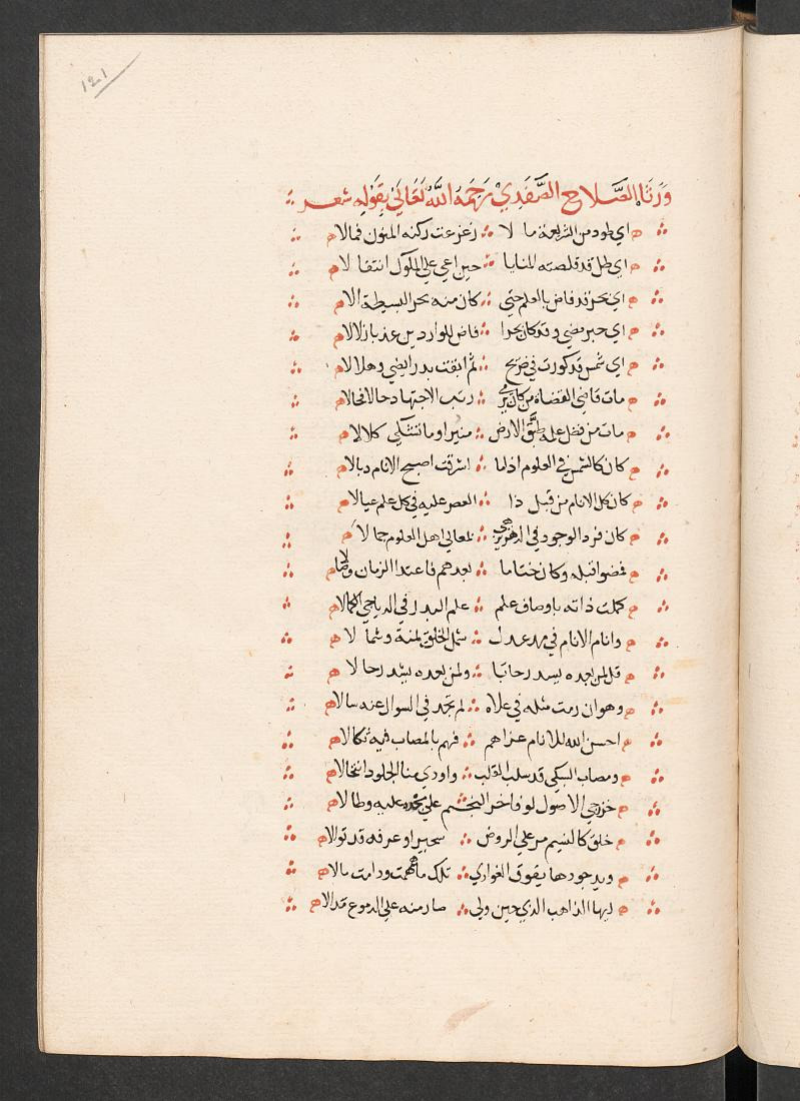 121
ورثاه الصلاح الصفدي رحمه الله تعالى بقوله شعر
اي طود من الشريعة مالا زعزعت ركنه المنون فمالا
اي ظل قد قلصته المنايا حين اعي علي الملوك انتقالا
اي بحر قد فاض بالعلم حتي كان منه بحر البسيطة الا
اي حبر مضي وقد كان بحرا فاض للواردين عذبا زلالا
اي شمس قد كورت في ضريح ثم ابقت بدرا يضي وهلالا
مات قاضي القضاة من كان يرقي رتب الاجتهاد حالا فحالا
مات من فضل علمه طبق الارض منيرا وما تشكي كلالا
كان كالشمس في العلوم اذا ما اشرقت اصبح الانام ذبالا
كان كل الانام من قبل ذا العصر عليه في كل علم عيالا
كان فرد الوجود في الدهر يزهي بمعالي اهل العلوم جمالا
فمضوا قبله وكان ختاما بعدهم فاعتدا الزمان وصالا
كملت ذاته باوصاف علم علم البدر في الدياجي الكمالا
وانام الانام في مهد عدل شمل الخلق يمنة وشمالا
قل لمن بعده يسد رحابا ولمن بعده يشد رحالا
وهو ان رمت مثله في علاه لم تجد في السوال عنه سالا
احسن الله للانام عزاهم فهم بالمصاب فيه ثكالا
ومصاب السبكي قد سلب القلب واودي منا الجلود انتحالا
خزرجي الاصول لو فاخر النجم علي مجده عليه وطالا
خلق كالنسيم مر علي الروض سحيرا وعرفه قد توالا
ويد جودها يفوق الغوادي تلك ما همت ودامت مالا
ايها الذاهب الذي حين ولي صار منه علي الدموع قدالا